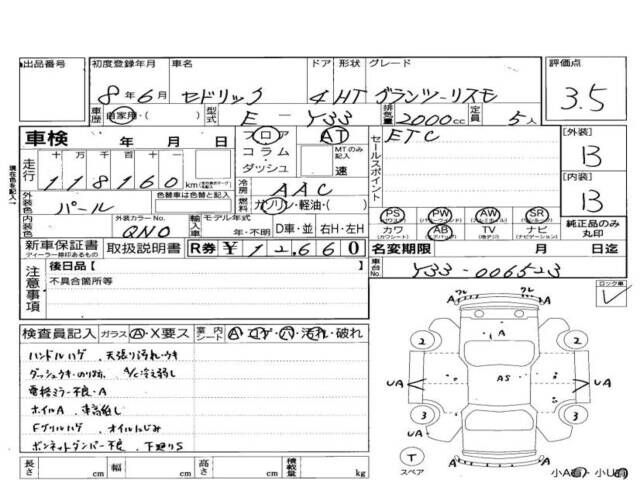 出品番号 初度登録年月 車名 ドア 形状 グレード 評価点
8年 6月 セドリック 4 HT グランツーリスモ 3.5
車歴 自家用・( ) 型式 E-Y33 排気量 2000cc 定員 5人
車検 年 月 日 フロア AT ETC [外装]
コラム MTのみ記入 セールスポイント B
走行 十万 千百十一 ダッシュ 速
118160 km 冷房 AAC [内装]
外装色 パール 色替車は色替と記入 燃料 ガソリン・軽油・( ) B
内装色 外装カラーNo. QN0 輸入車 モデル年式 年・不明 D車・並 右H・左H
PS PW AW SR 純正品のみ丸印
カワ AB TV ナビ
新車保証書 取扱説明書 R券 ¥12,660 名変期限 月 日迄
ディーラー捺印あるもの
注意事項 後日品[ 車台No. Y33-006523
不具合箇所等 ロック車
検査員記入 ガラス A・X要ス 室内シート A・コゲ・穴・汚れ・破れ
ハンドルハゲ、天張り汚れ・ウキ
ダッシュウキ・のり跡、A/C冷え弱し
電格ミラー不良・A
ホイルA、車高低し
Fグリルハゲ、オイルにじみ
ボンネットダンパー不良、下廻りS
長さ cm 幅 cm 高さ cm 積載量 kg
A ワレ ワレ A
A
2 2
UA AS UA
3 3
T
スペア
A A
小A 小U